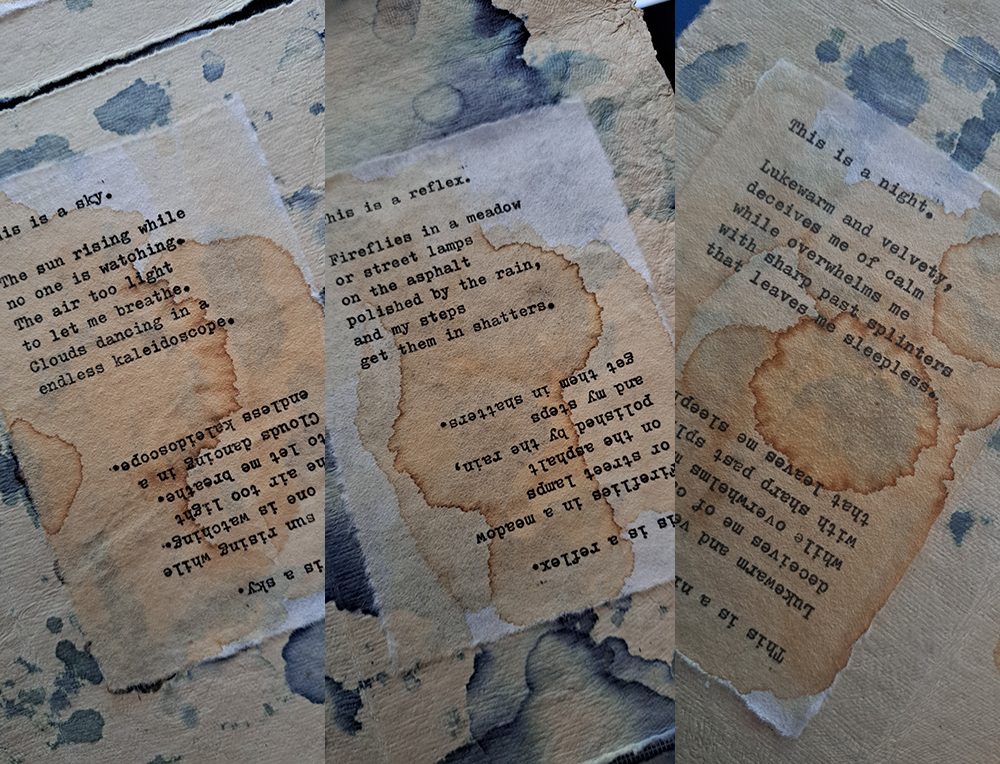 is is a sky.
The sun rising while
no one is watching.
The air too light
to let me breathe.
Clouds dancing in a
endless kaleidoscope.
is a sky.
sun rising while
one is watching.
air too light
to let me breathe.
Clouds dancing in a
endless kaleidoscope.
his is a reflex.
Fireflies in a meadow
or street lamps
on the asphalt
polished by the rain,
and my steps
get them in shatters.
is is a reflex.
Fireflies in a meadow
or street lamps
on the asphalt
polished by the rain,
and my steps
get them in shatters.
This is a night.
Lukewarm and velvety,
deceives me of calm
while overwhelms me
with sharp past splinters
that leaves me sleepless.
This is a ni
Lukewarm and ve
deceives me of
while overwhelms
with sharp past spl
that leaves me sleepl